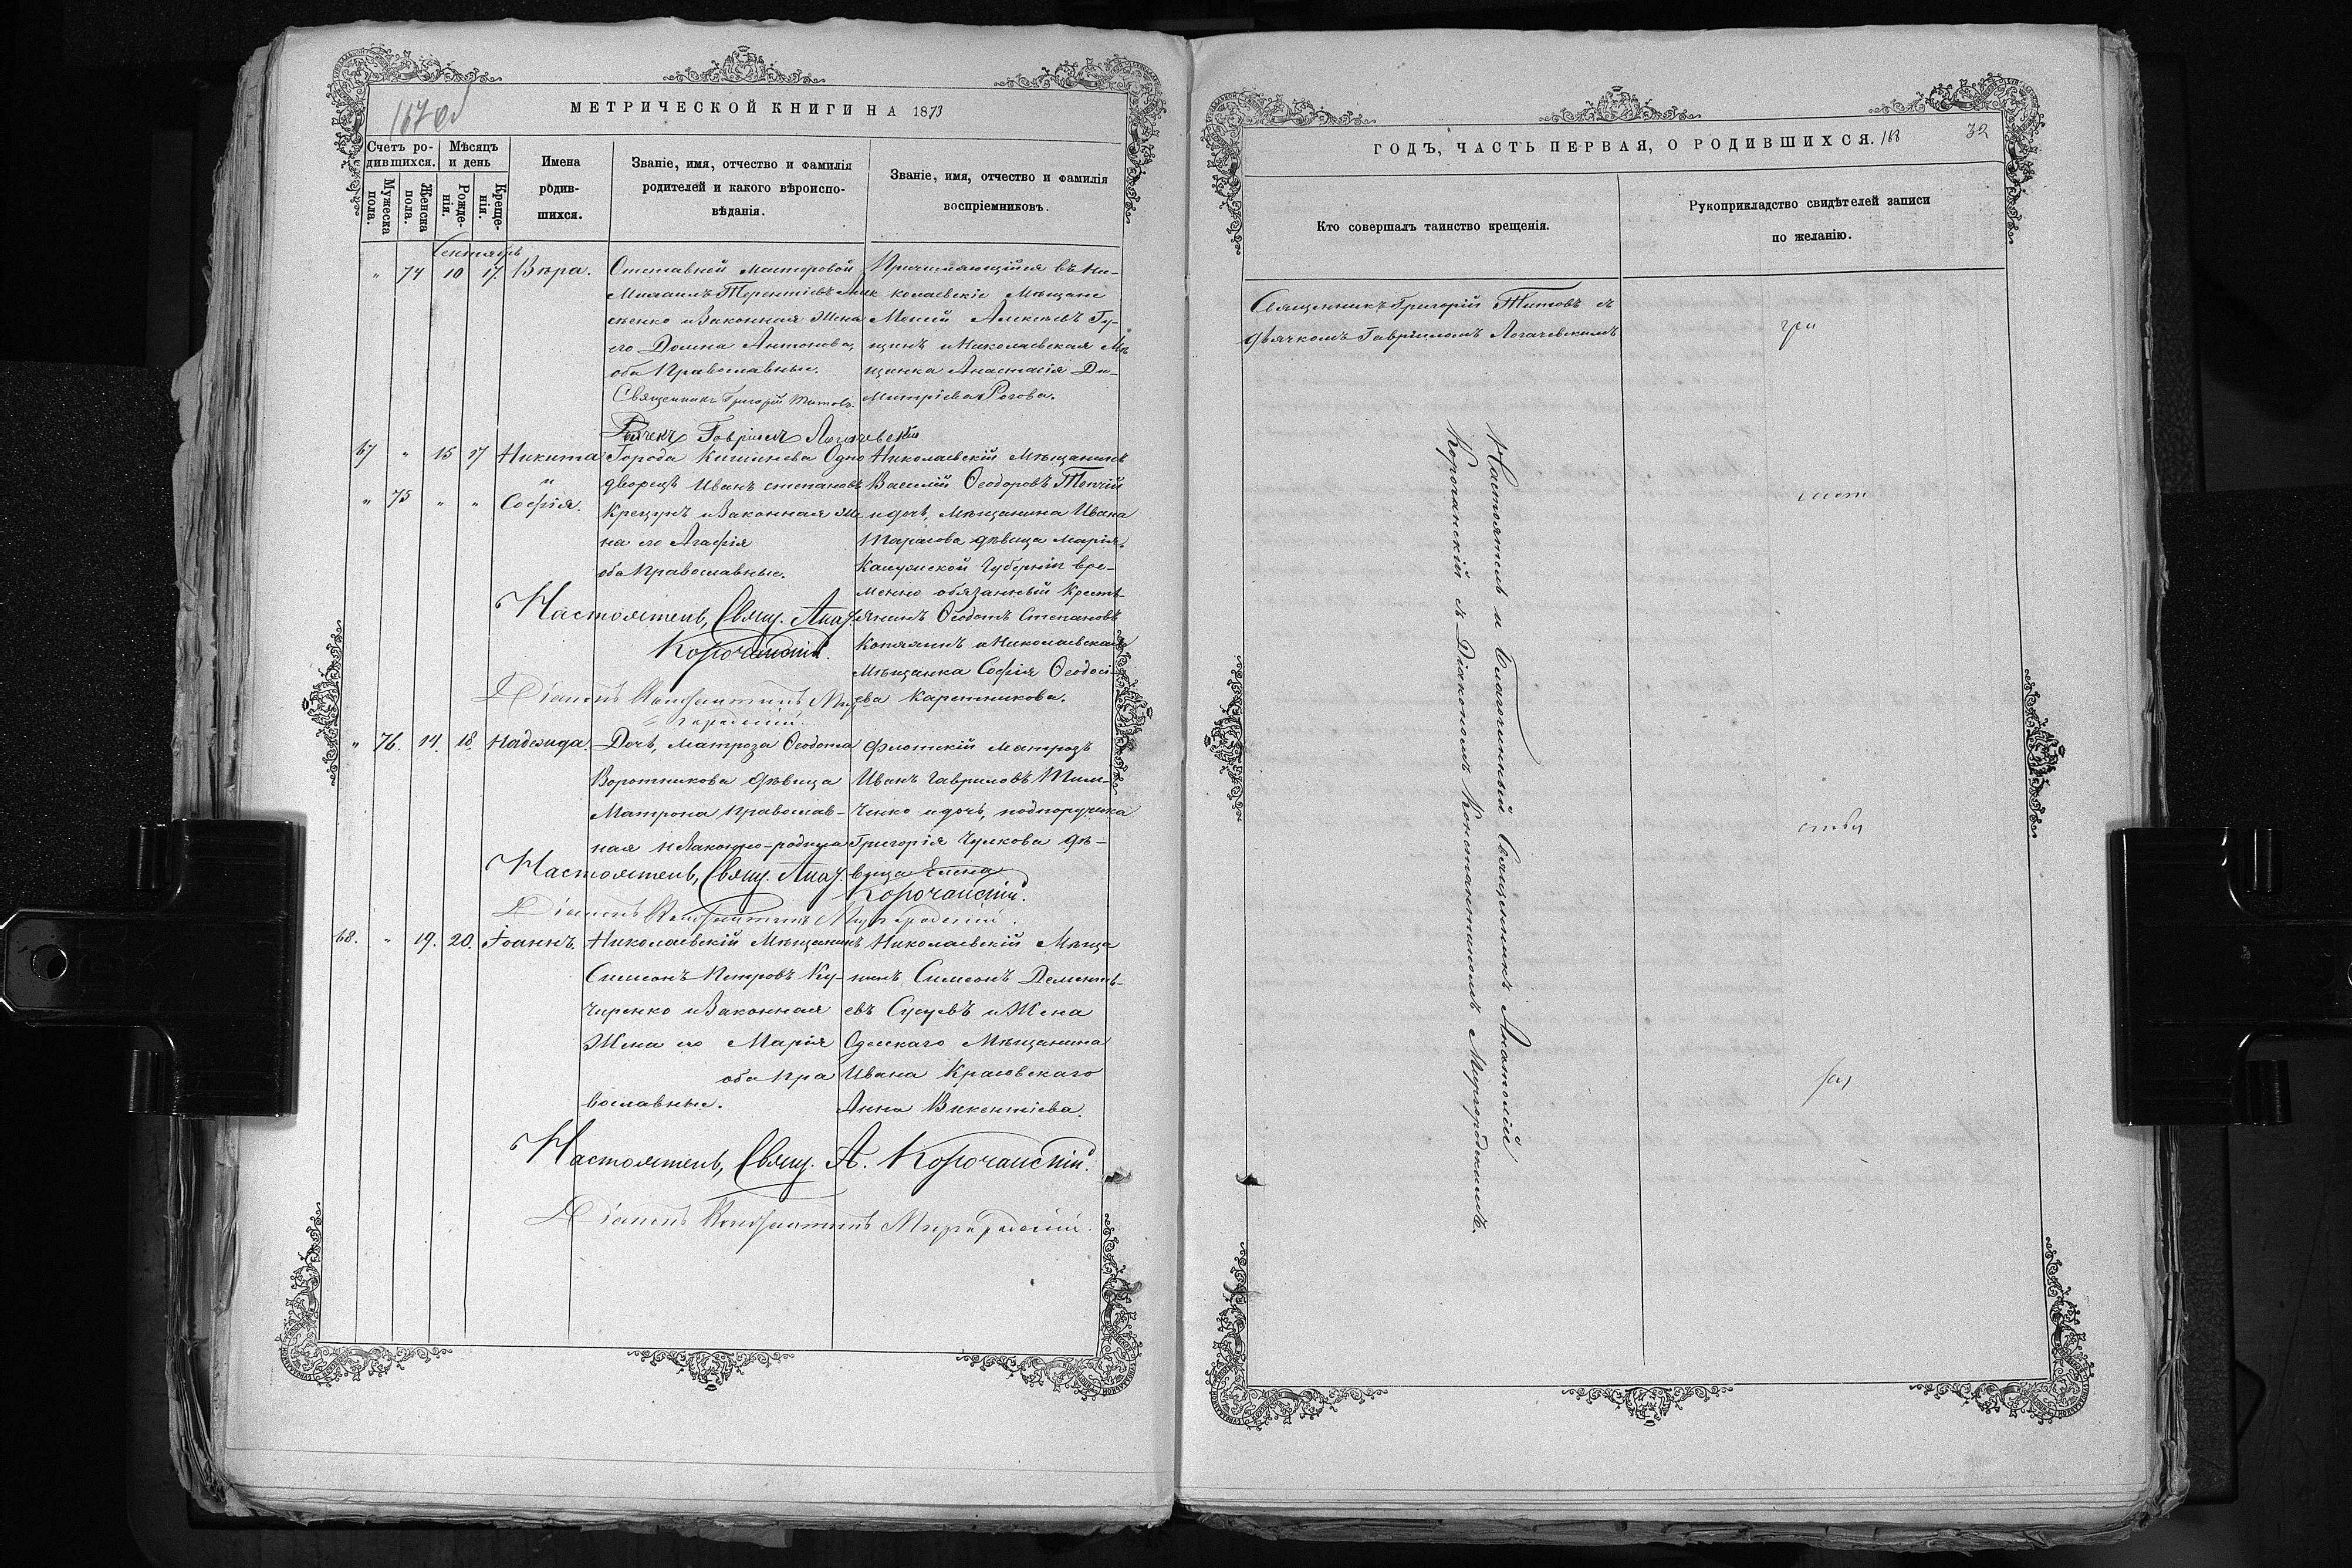 167 об
МЕТРИЧЕСКОЙ КНИГИ НА 1873
Счетъ ро-
дившихся.
Мѣсяцъ
и день
Мужеска
пола.
Женска
пола.
Рожде-
нія.
Креще-
нія.
Имена
родив-
шихся.
Званіе, имя, отчество и фамилія
родителей и какого вѣроиспо-
вѣданія.
Званіе, имя, отчество и фамилія
воспріемниковъ.
Сентябрь
" 74 10 17. Вѣра.
Отставной мастеровой
Михаилъ Терентіевъ
сѣенко и Законная Жена
его Домна Антонова,
оба Православные.
Священникъ Григорій Титовъ.
Дячекъ Гавріилъ Логачевскій
Причисляющійся въ Ни-
колаевскіе Мѣщане
Моисей Алексѣевъ Гу-
щинъ и Николаевская Мѣ
щанка Анастасія Ди-
митріева Рогова.
67 " 15 17 Никита
и
" 75 " " Софія.
Города Кишинева Одно
дворецъ Иванъ Степановъ
Крецунъ и Законная Же
на его Агафія
оба Православные.
Настоятель, Свящ. Анат.
Корочанскій.
Діаконъ Константинъ Мир
городскій.
Николаевскій Мѣщанинъ
Василій Ѳеодоровъ Топчій
и дочь, Мѣщанина Ивана
Тарасова дѣвица Марія.
Калужской Губерніи вре-
менно обязанный Кресть
янинъ Ѳеодотъ Степановъ
и Николаевская
Мѣщанка Софія Ѳеодосі-
ева Каретникова.
" 76. 14. 18. Надежда.
Дочь, матроза Ѳеодота
Воротникова дѣвица
Матрона Православ-
ная Незаконно-родила
Настоятель, Свящ. Анат.
Корочанскій.
Діаконъ Константинъ Миргородскій.
Флотскій матрозъ
Иванъ Гавриловъ Тим-
ченко и дочь, подпоручика
Григорія Чулкова дѣ-
вица Елена
68. " 19. 20. Іоаннъ.
Николаевскій Мѣщанинъ
Симеонъ Петровъ Ку-
черенко и Законная
Жена его Марія
оба Пра
вославные.
Николаевскій Мѣща
нинъ Симеонъ Дементь-
евъ Сусуевъ и Жена
Одесскаго Мѣщанина
Ивана Красовскаго
Анна Викентіева.
Настоятель, Свящ. А. Корочанскій.
Діаконъ Константинъ Миргородскій.
ГОДЪ, ЧАСТЬ ПЕРВАЯ, О РОДИВШИХСЯ. 168
32
Кто совершалъ таинство крещенія.
Рукоприкладство свидѣтелей записи
по желанію.
Священникъ Григорій Титовъ съ
дьячкомъ Гавріиломъ Логачевскимъ
Настоятель и Благочинный Священникъ Анатолій
Корочанскій съ Діакономъ Константиномъ Миргородскимъ.